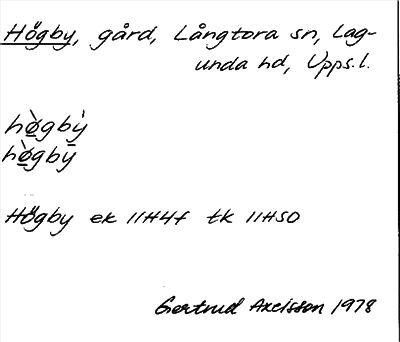 Högby, gård, Långtora sn, Lag-
unda hd, Upps.l.
hø̠̀gbỳ̠
hø̠̀gbȳ
Högby ek 11H4f tk 11H50
Gertrud Axelsson 1978